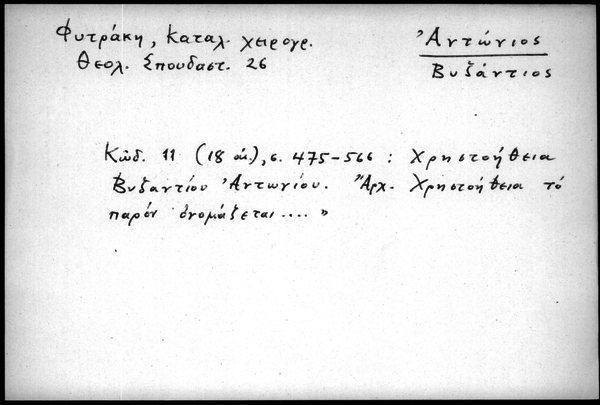 Φυτράκη, Καταλ. χειρογρ.
Θεολ. Σπουδαστ. 26
Ἀντώνιος
Βυζάντιος
Κῶδ. 11 (18 αἰ.), σ. 475-566 : Χρηστοήθεια
Βυζαντίου Ἀντωνίου. "Ἀρχ. Χρηστοήθεια τό
παρόν ὀνομάζεται.... »